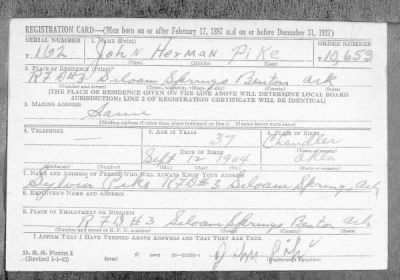 REGISTRATION CARD—(Men born on or after February 17, 1897 and on or before December 31, 1921)
SERIAL NUMBER 1. NAME (Print) ORDER NUMBER
T 162 John Herman Pike T 10,653
(First) (Middle) (Last)
2. PLACE OF RESIDENCE (Print)
RFD#3 Siloam Springs Benton Ark
(Number and street) (Town, township, village, or city) (County) (State)
[THE PLACE OF RESIDENCE GIVEN ON THE LINE ABOVE WILL DETERMINE LOCAL BOARD
JURISDICTION; LINE 2 OF REGISTRATION CERTIFICATE WILL BE IDENTICAL]
3. MAILING ADDRESS
Same
[Mailing address if other than place indicated on line 2. If same insert word same]
4. TELEPHONE 5. AGE IN YEARS 6. PLACE OF BIRTH
37 Chandler
DATE OF BIRTH (Town or county)
Sept 12 1904 Okla
(Exchange) (Number) (Mo.) (Day) (Yr.) (State or country)
7. NAME AND ADDRESS OF PERSON WHO WILL ALWAYS KNOW YOUR ADDRESS
Pike RFD#3 Siloam Springs Ark
8. EMPLOYER'S NAME AND ADDRESS
9. PLACE OF EMPLOYMENT OR BUSINESS
RFD#3 Siloam Springs Benton Ark
(Number and street or R. F. D. number) (Town) (County) (State)
I AFFIRM THAT I HAVE VERIFIED ABOVE ANSWERS AND THAT THEY ARE TRUE.
D. S. S. Form 1
(Revised 1-1-42) (over) GPO
Pike
(Registrant's signature)